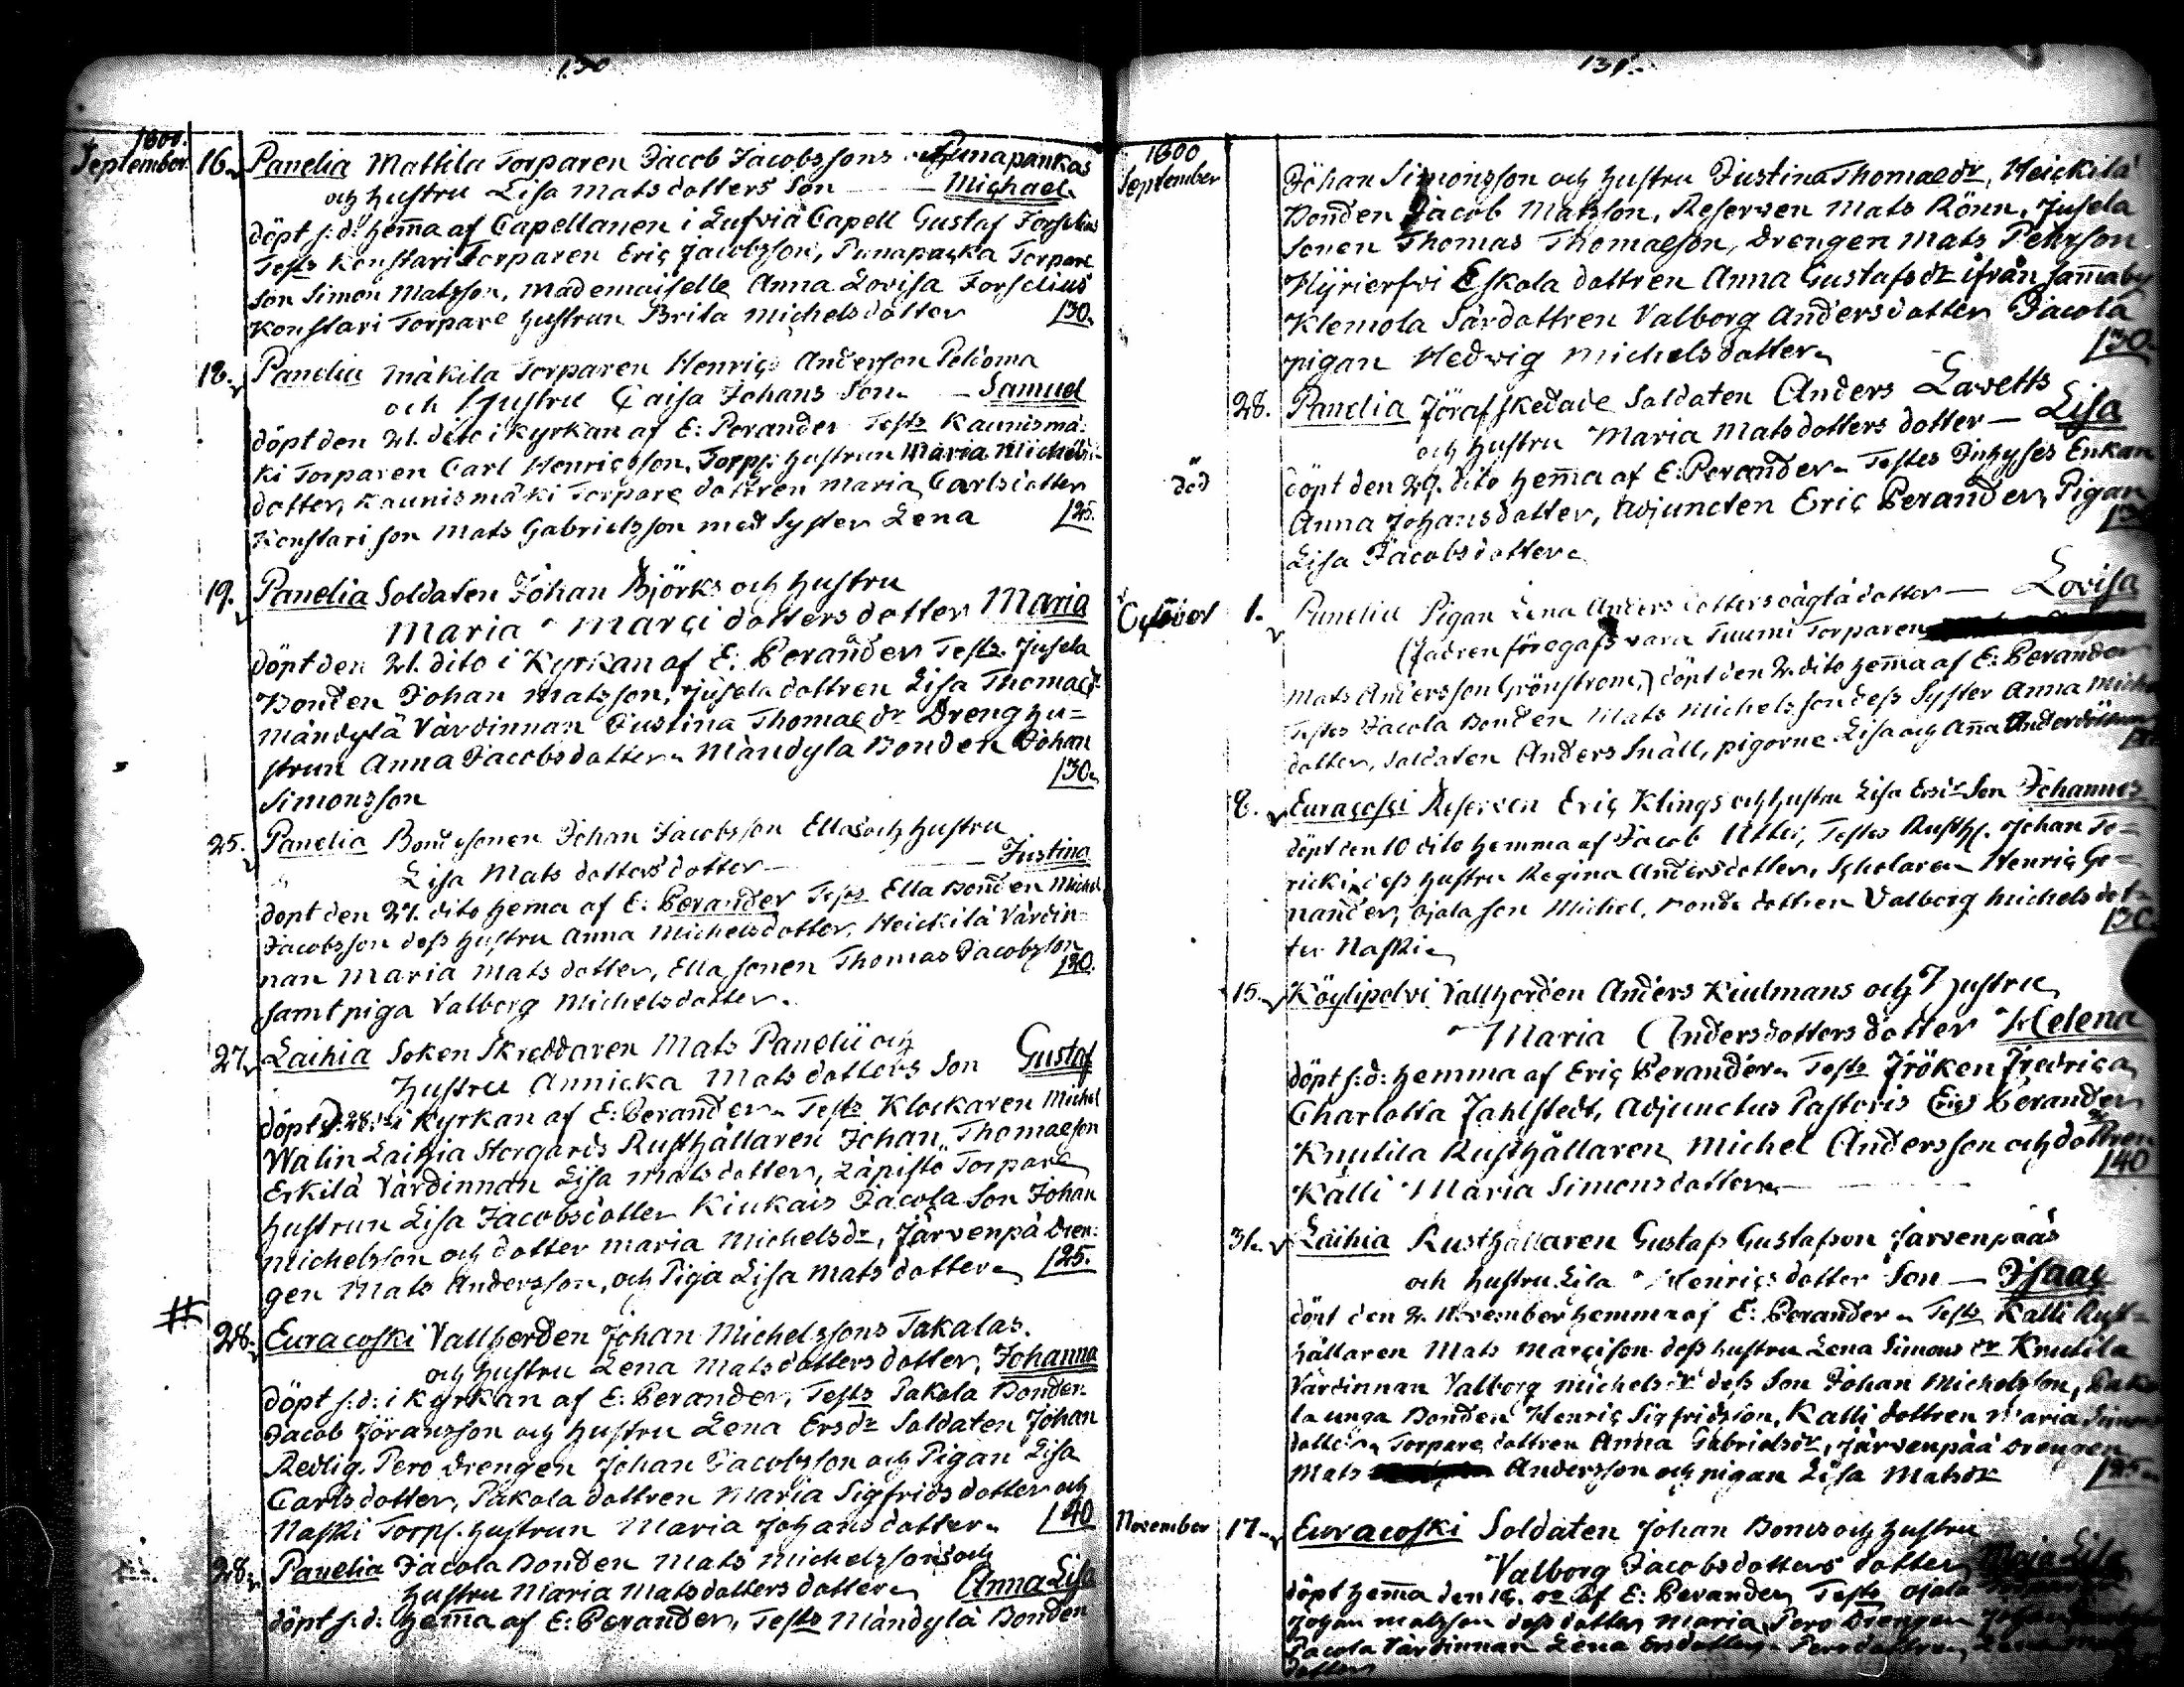 130
1800.
September 16. Panelia Mattila Torparen Jacob Jacobssons Punapankas
och hustru Lisa Matsdotters Son — Michael
döpt s: d: hem̄a af Capellanen i Lufvia Capell Gustaf Forselius
Tests Konstari Torparen Eric Jacobsson, Punapacka Torpare
Son Simon Matsson, Mademaiselle Anna Lovisa Forselius
Konstari Torpare hustrun Brita Michelsdotter /30.
18. Panelia Mäkilä Torparen Henrics Andersson Peldoma
och Hustru Caisa Johans Son — Samuel
döpt den 21. dito i Kyrkan af E: Perander Tests Kaunismä-
ki Torparen Carl Henricsson, Torp: hustrun Maria Michels
dotter, Kaunismäki Torpare dottren Maria Carlsdotter
Konstari son Mats Gabrielsson med Syster Lena /25.
19. Panelia Soldaten Johan Björks och hustru
Maria Marci dotters dotter Maria
döpt den 21. dito i Kyrkan af E: Perander Tests. Jusela
Bonden Johan Matsson, Jusela dottren Lisa Thomædr
Mändylä Värdinnan Justina Thomæ dr Dreng hu=
strun Anna Jacobsdotter Mändyla Bonden Johan
Simonsson /30.
25. Panelia Bondesonen Johan Jacobsson Ellas och hustru
Lisa Mats dotters dotter — Justina
döpt den 27. dito hem̄a af E: Perander Tests Ella Bonden Michel
Jacobsson dess hustru Anna Michelsdotter, Heickilä Värdin-
nan Maria Mats dotter, Ella sonen Thomas Jacobsson
samt piga Valborg Michelsdotter. /30.
27. Laihia Soken Skreddaren Mats Panelii och
Hustru Annicka Mats dotters Son Gustaf
döpt d: 28: i Kyrkan af E: Perander Tests Klockaren Michel
Walin Laihia Storgårds Rusthållaren Johan Thomæson
Erkilä Värdinnan Lisa Mats dotter, Läpistö Torpare
hustrun Lisa Jacobsdotter Kiukais Jacola Son Johan
Michelsson och dotter Maria Michelsdr, Järvenpä Dren:
gen Mats Andersson, och Piga Lisa Mats dotter /25.
# 28. Euracoski Vallherden Johan Michelssons Takalas.
och hustru Lena Matsdotters dotter, Johanna
döpt s: d: i Kyrkan af E: Perander, Tests Pakola Bonden
Jacob Jöransson och hustru Lena Ersdr Soldaten Johan
Redlig. Pero Drengen Johan Jacobsson och Pigan Lisa
Carlsdotter, Pakola dottren Maria Sigfridsdotter och
Naski Torps. hustrun Maria Johansdotter /40
28. Panelia Jacola Bonden Mats Michelssons och
Hustru Maria Matsdotters dotter Anna Lisa
döpt s: d: hem̄a af E: Perander, Tests Mändylä Bonden
131.
1800
September
Johan Simonsson och hustru Justina Thomædr, Heickilä
Bonden Jacob Matsson, Reserven Mats Rönn, Jusela
Sonen Thomas Thomæson, Drengen Mats Pehrson
Hÿrierfvi Eskola dottren Anna Gustafsdr ifrån sam̄aby
Klemola Särdottren Valborg Andersdotter Jacola
pigan Hedvig Michelsdotter /30.
28. Panelia Jöraf skedade Soldaten Anders Lavetts
och hustru Maria Matsdotters dotter — Lisa
död döpt den 29. dito hem̄a af E: Perander Testes Enkan
Anna Johansdotter, Adjuncten Eric Perander, Pigan
Lisa Jacobsdotter
October 1. Panelia Pigan Lena Anders dotters oägta dotter — Lovisa
(fadren föregafs vara Tuumi Torparen
Mats Andersson Grönstrom,) döpt den 2. dito hem̄a af E: Perander
Testes Jacola Bonden Mats Michelsson dess Syster Anna Michels
dotter, Soldaten Anders Snäll, pigorne Lisa och An̄a
8. Euracoski Reserven Eric Klings och hustru Lisa Ersdr Son Johannes
döpt den 10 dito hemma af Jacob Utter, Testes Rusth. Johan To=
ricki, dess hustru Regina Andersdotter, Scholaren Henric Ge=
nander, Ojala son Michel, Bonde dottren Valborg Michelsdot=
ter Naski /30.
15. Köylipolvi Vallherden Anders Kiulmans och Hustru
Maria Andersdotters dotter Helena
döpt s: d: hemma af Eric Perander Tests Fröken Fredrica
Charlotta Fahlstedt, Adjunctus Pastoris Eric Perander
Knutila Rusthållaren Michel Andersson och dottren
Kalli Maria Simonsdotter — /40
31. Laihia Rusthållaren Gustaf Gustafson Järvenpääs
och hustru Lisa Henrics dotter Son — Isaac
döpt den 2. November hemma af E: Perander Tests Kalli Rust=
hållaren Mats Marcison dess hustru Lena Simons dr Knutila
Värdinnan Valborg Michelsdr dess Son Johan Michelsson, Pako
la unga Bonden Henric Sigfridsson, Kalli dottren Maria Simons
dotter Torpare dottren Anna Gabrielsdr, Järvenpää Drengen
Mats Andersson och pigan Lisa Matsdr /25.
November 17. Euracoski Soldaten Johan Boms och hustru
Valborg Jacobsdotters dotter Maja Lisa
döpt hem̄a den 18. do af E: Perander Tests Ojala
Johan Matsson dess dotter Maria, Pero Drengen
Jacola Värdinnan Lena Ersdotter Pero dottren
dotter